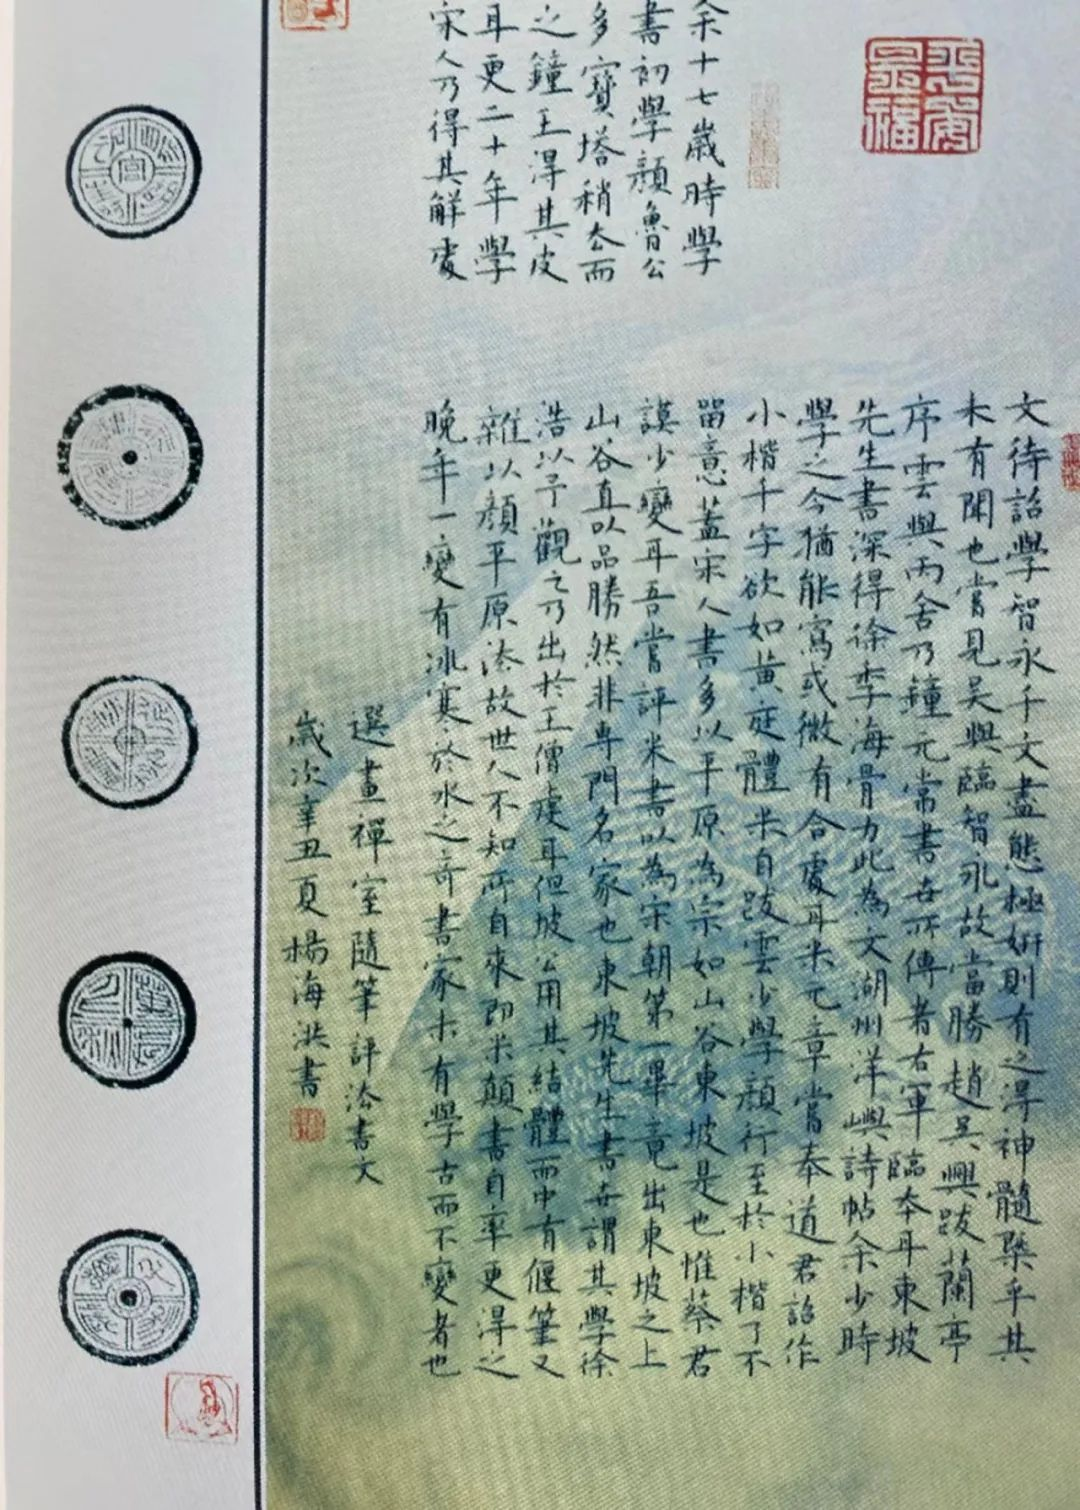 余十七歲時學
書初學顏魯公
多寶塔稍去而
之鐘王得其皮
耳更二十年學
宋人乃得其解處
文待詔學智永千文盡態極妍則有之得神髓槩乎其
未有聞也嘗見吴興臨智永故當勝趙吴興跋蘭亭
序雲與丙舍乃鐘元常書世所傳者右軍臨本耳東坡
先生書深得徐季海骨力此為文湖州洋嶼詩帖余少時
學之今猶能寫或微有合處耳米元章嘗奉道君詔作
小楷千字欲如黄庭體米自跋雲少學顏行至於小楷了不
留意蓋宋人書多以平原為宗如山谷東坡是也惟蔡君
謨少變耳吾嘗評米書以為宋朝第一畢竟出東坡之上
山谷直以品勝然非專門名家也東坡先生書世謂其學徐
浩以予觀之乃出於王僧虔耳但坡公用其結體而中有偃筆又
雜以顏平原法故世人不知所自來即米顛書自率更得之
晚年一變有冰寒於水之奇書家未有學古而不變者也
選畫禪室隨筆評法書文
歲次辛丑夏楊海洪書